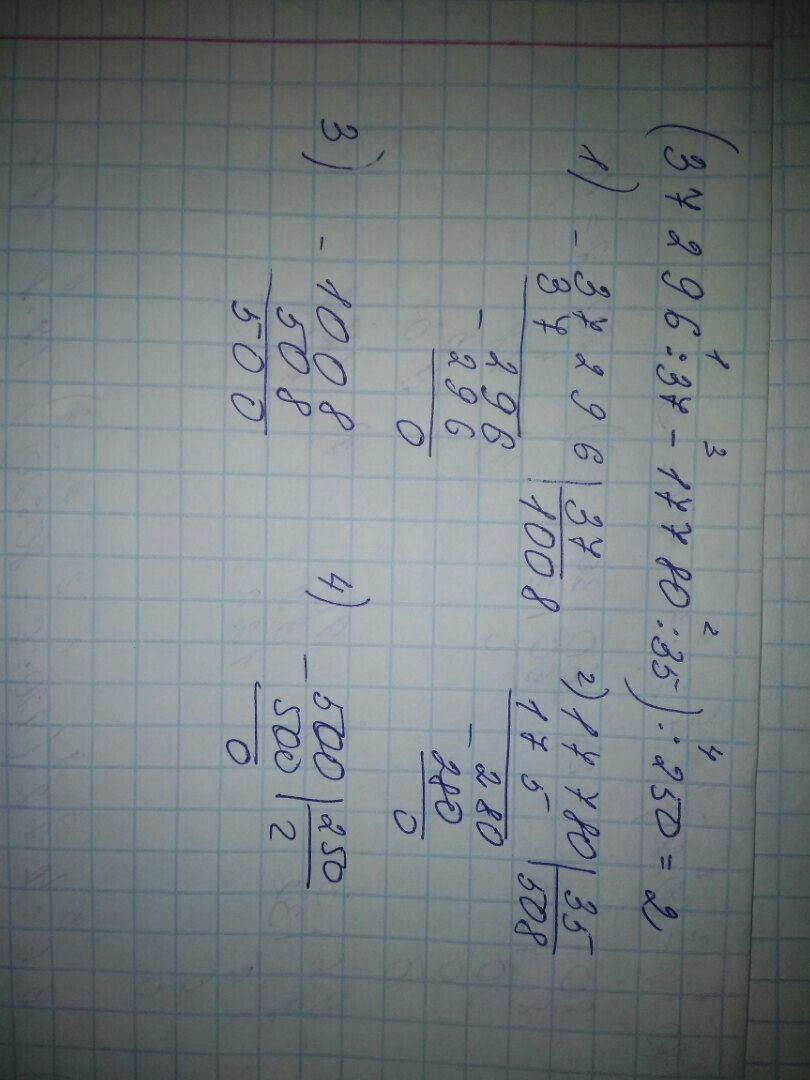 (37296:37-17780:35):250=2
1 3 2 4
1) -37296|37
37 1008
-296
296
0
2) 17780|35
175 508
-280
280
0
3) -1008
508
500
4) -500|250
500 2
0